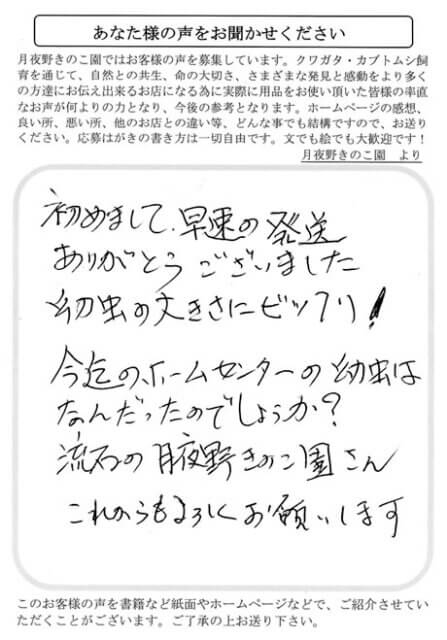 あなた様の声をお聞かせください
月夜野きのこ園ではお客様の声を募集しています。クワガタ・カブトムシ飼
育を通じて、自然との共生、命の大切さ、さまざまな発見と感動をより多く
の方達にお伝え出来るお店になる為に実際に用品をお使い頂いた皆様の率直
なお声が何よりの力となり、今後の参考となります。ホームページの感想、
良い所、悪い所、他のお店との違い等、どんな事でも結構ですので、お送り
ください。応募はがきの書き方は一切自由です。文でも絵でも大歓迎です！
月夜野きのこ園　より
初めまして、早速の発送
ありがとうございました
幼虫の大きさにビックリ！
今迄のホームセンターの幼虫は
なんだったのでしょうか？
流石の月夜野きのこ園さん
これからもよろしくお願いします
このお客様の声を書籍など紙面やホームページなどで、ご紹介させてい
ただくことがございます。ご了承の上お送り下さい。